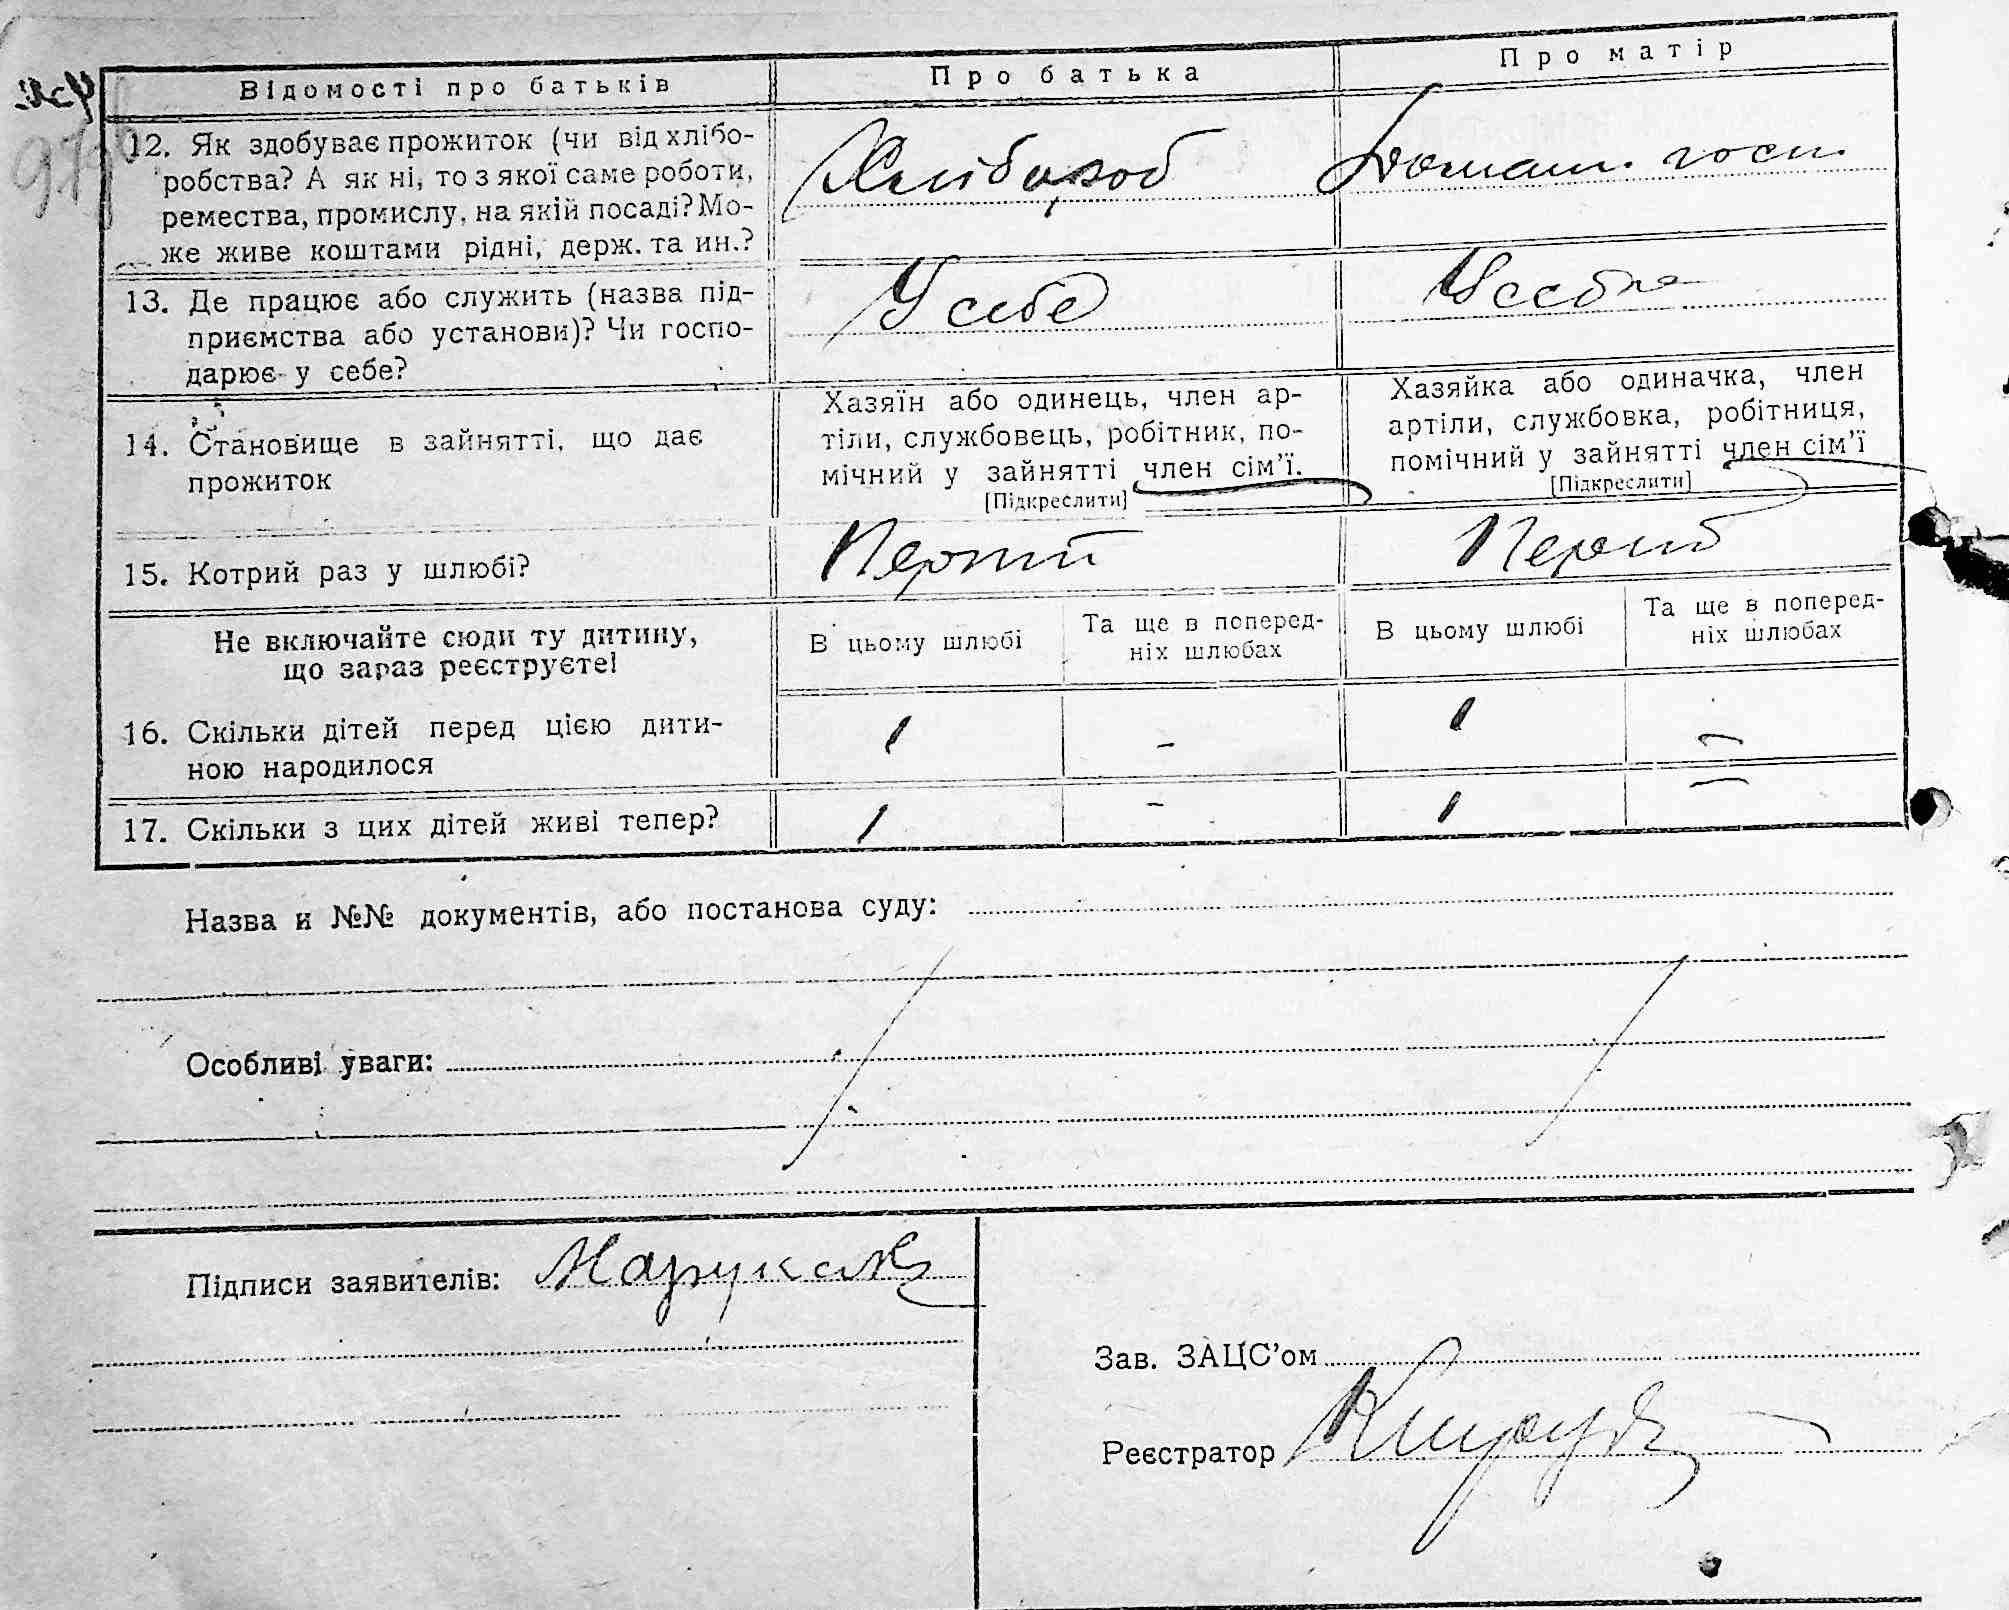 Відомості про батьків
Про батька
Про матір
12. Як здобуває прожиток (чи від хлібо-
робства? А як ні, то з якої саме роботи,
ремества, промислу, на якій посаді? Мо-
же живе коштами рідні, держ. та ин.?
Хлібороб
Домашн. госп.
13. Де працює або служить (назва під-
приємства або установи)? Чи госпо-
дарює у себе?
У себе
У себе
14. Становище в зайнятті, що дає
прожиток
Хазяїн або одинець, член ар-
тіли, службовець, робітник, по-
мічний у зайнятті член сім'ї.
[Підкреслити]
Хазяйка або одиначка, член
артіли, службовка, робітниця,
помічний у зайнятті член сім'ї
[Підкреслити]
15. Котрий раз у шлюбі?
Перший
Перший
Не включайте сюди ту дитину,
що зараз реєструєте!
В цьому шлюбі
Та ще в поперед-
ніх шлюбах
В цьому шлюбі
Та ще в поперед-
ніх шлюбах
16. Скільки дітей перед цією дити-
ною народилося
1 - 1 -
17. Скільки з цих дітей живі тепер?
1 - 1 -
Назва и №№ документів, або постанова суду:
Особливі уваги:
Підписи заявителів:
Зав. ЗАЦС'ом
Реєстратор